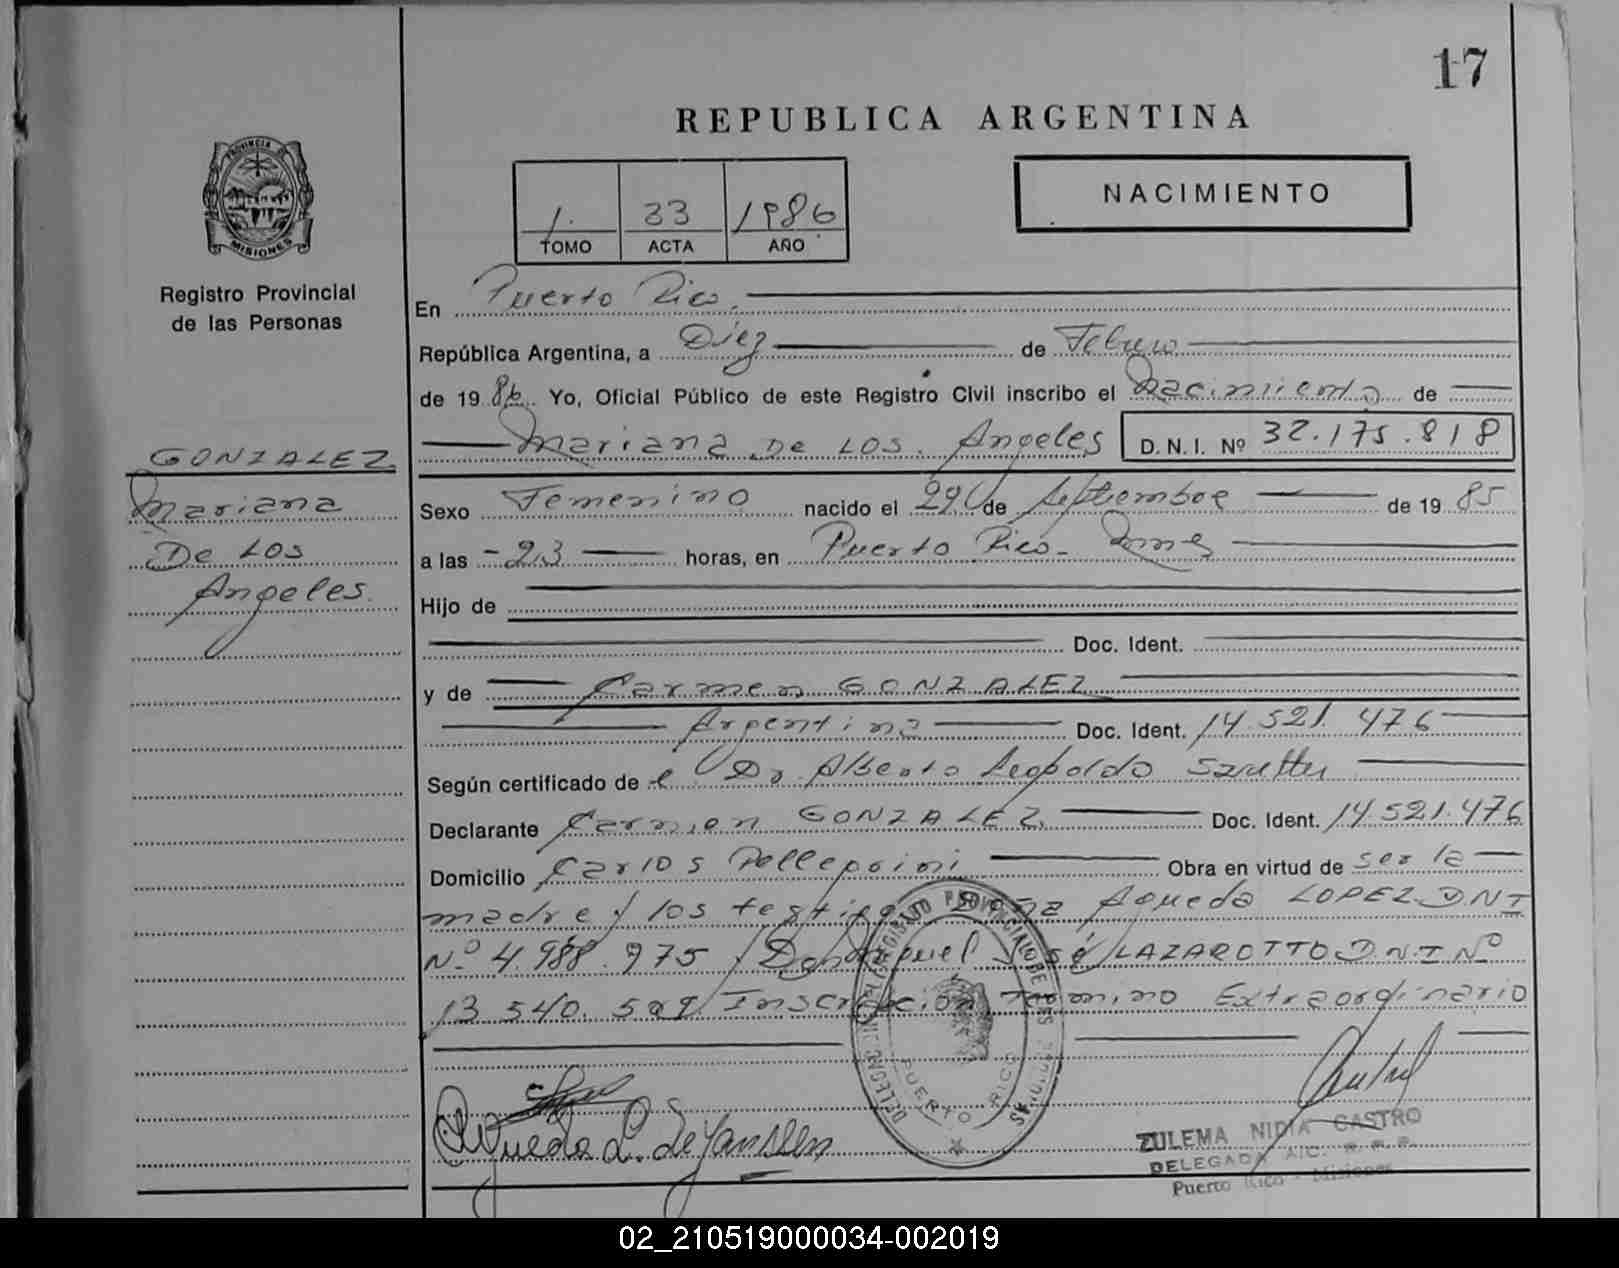 17
REPUBLICA ARGENTINA
PROVINCIA DE
MISIONES
1. 33 1986
TOMO ACTA AÑO
NACIMIENTO
Registro Provincial
de las Personas
GONZALEZ
Mariana
De Los
Angeles.
En Puerto Rico.
República Argentina, a Diez de Febrero
de 1986 Yo, Oficial Público de este Registro Civil inscribo el Nacimiento de
Mariana De Los Angeles D.N.I. Nº 32.175.818
Sexo Femenino nacido el 29 de Septiembre de 1985
a las -23 horas, en Puerto Rico- Mnes
Hijo de
Doc. Ident.
y de Carmen GONZALEZ
Argentina Doc. Ident. 14.521.476
Según certificado de el Dr. Alberto Leopoldo
Declarante Carmen GONZALEZ Doc. Ident. 14.521.476
Domicilio Carlos Pellegrini Obra en virtud de ser la
madre y los testigos Doña Agueda LOPEZ D.N.I
Nº 4.988.975 y Don José LAZAROTTO D.N.I Nº
13.540. Inscripción Termino Extraordinario
Agueda L. de Janssen
DELEGACION REGISTRO PROVINCIAL DE LAS PERSONAS
PUERTO RICO
ZULEMA NIDIA CASTRO
DELEGADA
Puerto Rico - Misiones
02_210519000034-002019